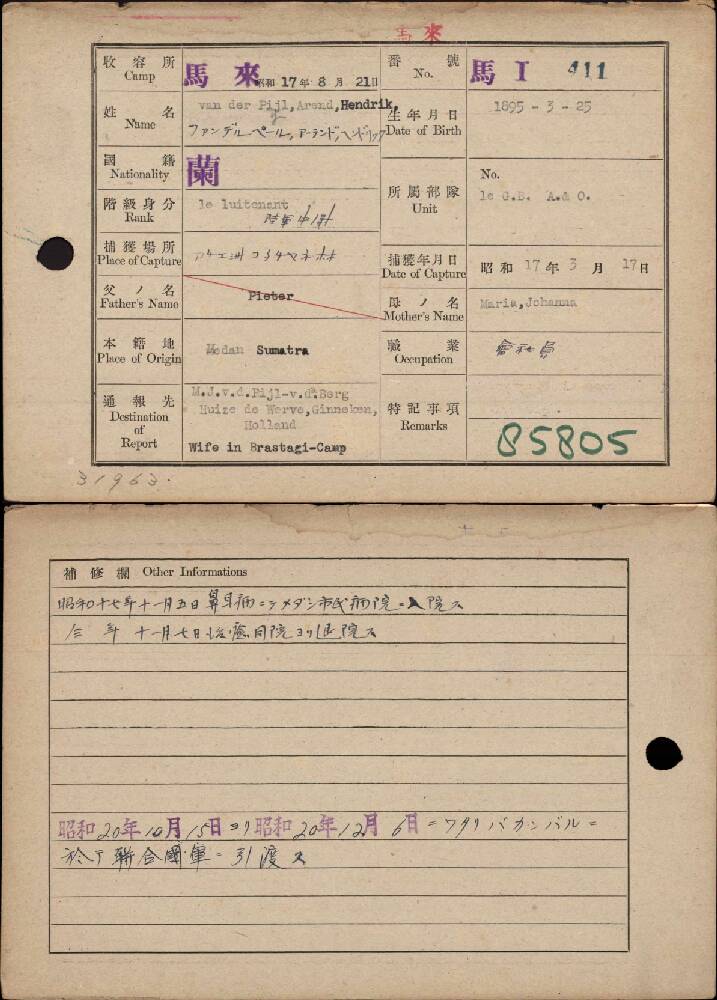 馬來
收容所
Camp
馬來 昭和17年8月21日
番號
No.
馬 I 411
姓名
Name
van der Pijl, Arend, Hendrik,
ファンデルペール, アーランド, ヘンドリック
生年月日
Date of Birth
1895-3-25
國籍
Nationality
蘭
所屬部隊
Unit
No.
1e G.B. A.& O.
階級身分
Rank
1e luitenant
陸軍中尉
捕獲場所
Place of Capture
捕獲年月日
Date of Capture
昭和 17年 3月 17日
父ノ名
Father's Name
Pieter
母ノ名
Mother's Name
Maria, Johanna
本籍地
Place of Origin
Medan Sumatra
職業
Occupation
會社員
通報先
Destination
of
Report
M.J.v.d.Pijl-v.d.Berg
Huize de Werve, Ginneken,
Holland
Wife in Brastagi-Camp
特記事項
Remarks
85805
31963.
補修欄 Other Informations
昭和十七年十一月五日鼻耳病ニテメダン市民病院ニ入院ス
仝年十一月七日治癒同院ヨリ退院ス
昭和20年10月15日ヨリ昭和20年12月6日ニワタリパカンバルニ
於テ聯合國軍ニ引渡ス